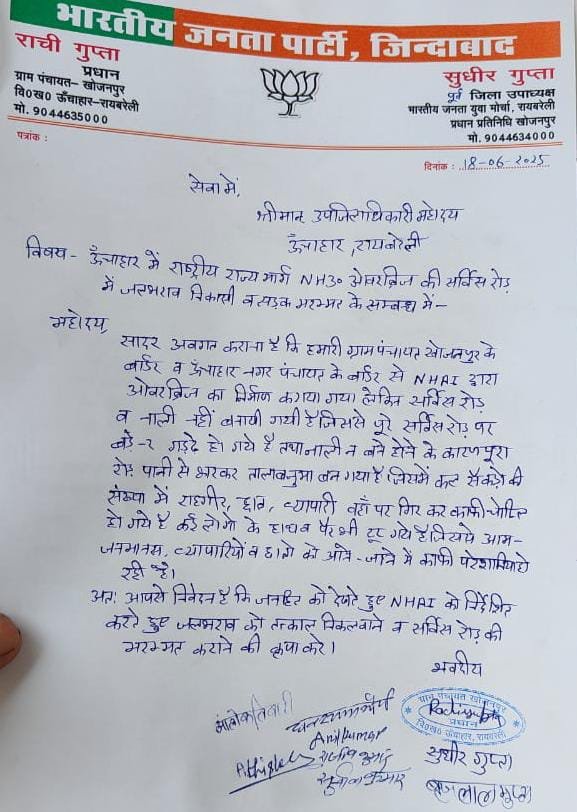 भारतीय जनता पार्टी, जिन्दाबाद
राची गुप्ता
प्रधान
ग्राम पंचायत- खोजनपुर
वि०ख० ऊँचाहार-रायबरेली
मो. 9044635000
सुधीर गुप्ता
पूर्व जिला उपाध्यक्ष
भारतीय जनता युवा मोर्चा, रायबरेली
प्रधान प्रतिनिधि खोजनपुर
मो. 9044634000
पत्रांक :
दिनांक : 18-06-2025
सेवा में,
श्रीमान उपजिलाधिकारी महोदय
ऊँचाहार, रायबरेली
विषय - ऊँचाहार में राष्ट्रीय राज्य मार्ग NH30 ओवरब्रिज की सर्विस रोड़
में जलभराव निकासी व सड़क मरम्मत के सम्बन्ध में-
महोदय,
सादर अवगत कराना है कि हमारी ग्राम पंचायत खोजनपुर के
बार्डर व ऊँचाहार नगर पंचायत के बार्डर से NHAI द्वारा
ओवरब्रिज का निर्माण कराया गया लेकिन सर्विस रोड़
व नाली नहीं बनायी गयी है जिससे पूरे सर्विस रोड़ पर
बड़े-२ गड्ढे हो गये है तथा नाली न बने होने के कारण पूरा
रोड़ पानी से भरकर तालाबनुमा बन गया है जिसमें कल सैकड़ो की
संख्या में राहगीर, छात्र, व्यापारी वहाँ पर गिर कर काफी चोटिल
हो गये है कई लोगो के हाथ व पैर भी टूट गये है जिससे आम-
जनमानस, व्यापारियों व छात्रो को आने-जाने में काफी परेशानिया हो
रही है।
अतः आपसे निवेदन है कि जनहित को देखते हुए NHAI को निर्देशित
करते हुए जलभराव को तत्काल निकलवाने व सर्विस रोड़ की
मरम्मत कराने की कृपा करे।
भवदीय
आलोक तिवारी
Anil kumar
Abhishek
सुनील कुमार
ग्राम पंचायत खोजनपुर
Rachi gupta
प्रधान
वि०ख० ऊँचाहार, रायबरेली
सुधीर गुप्ता
बृजलाल गुप्ता